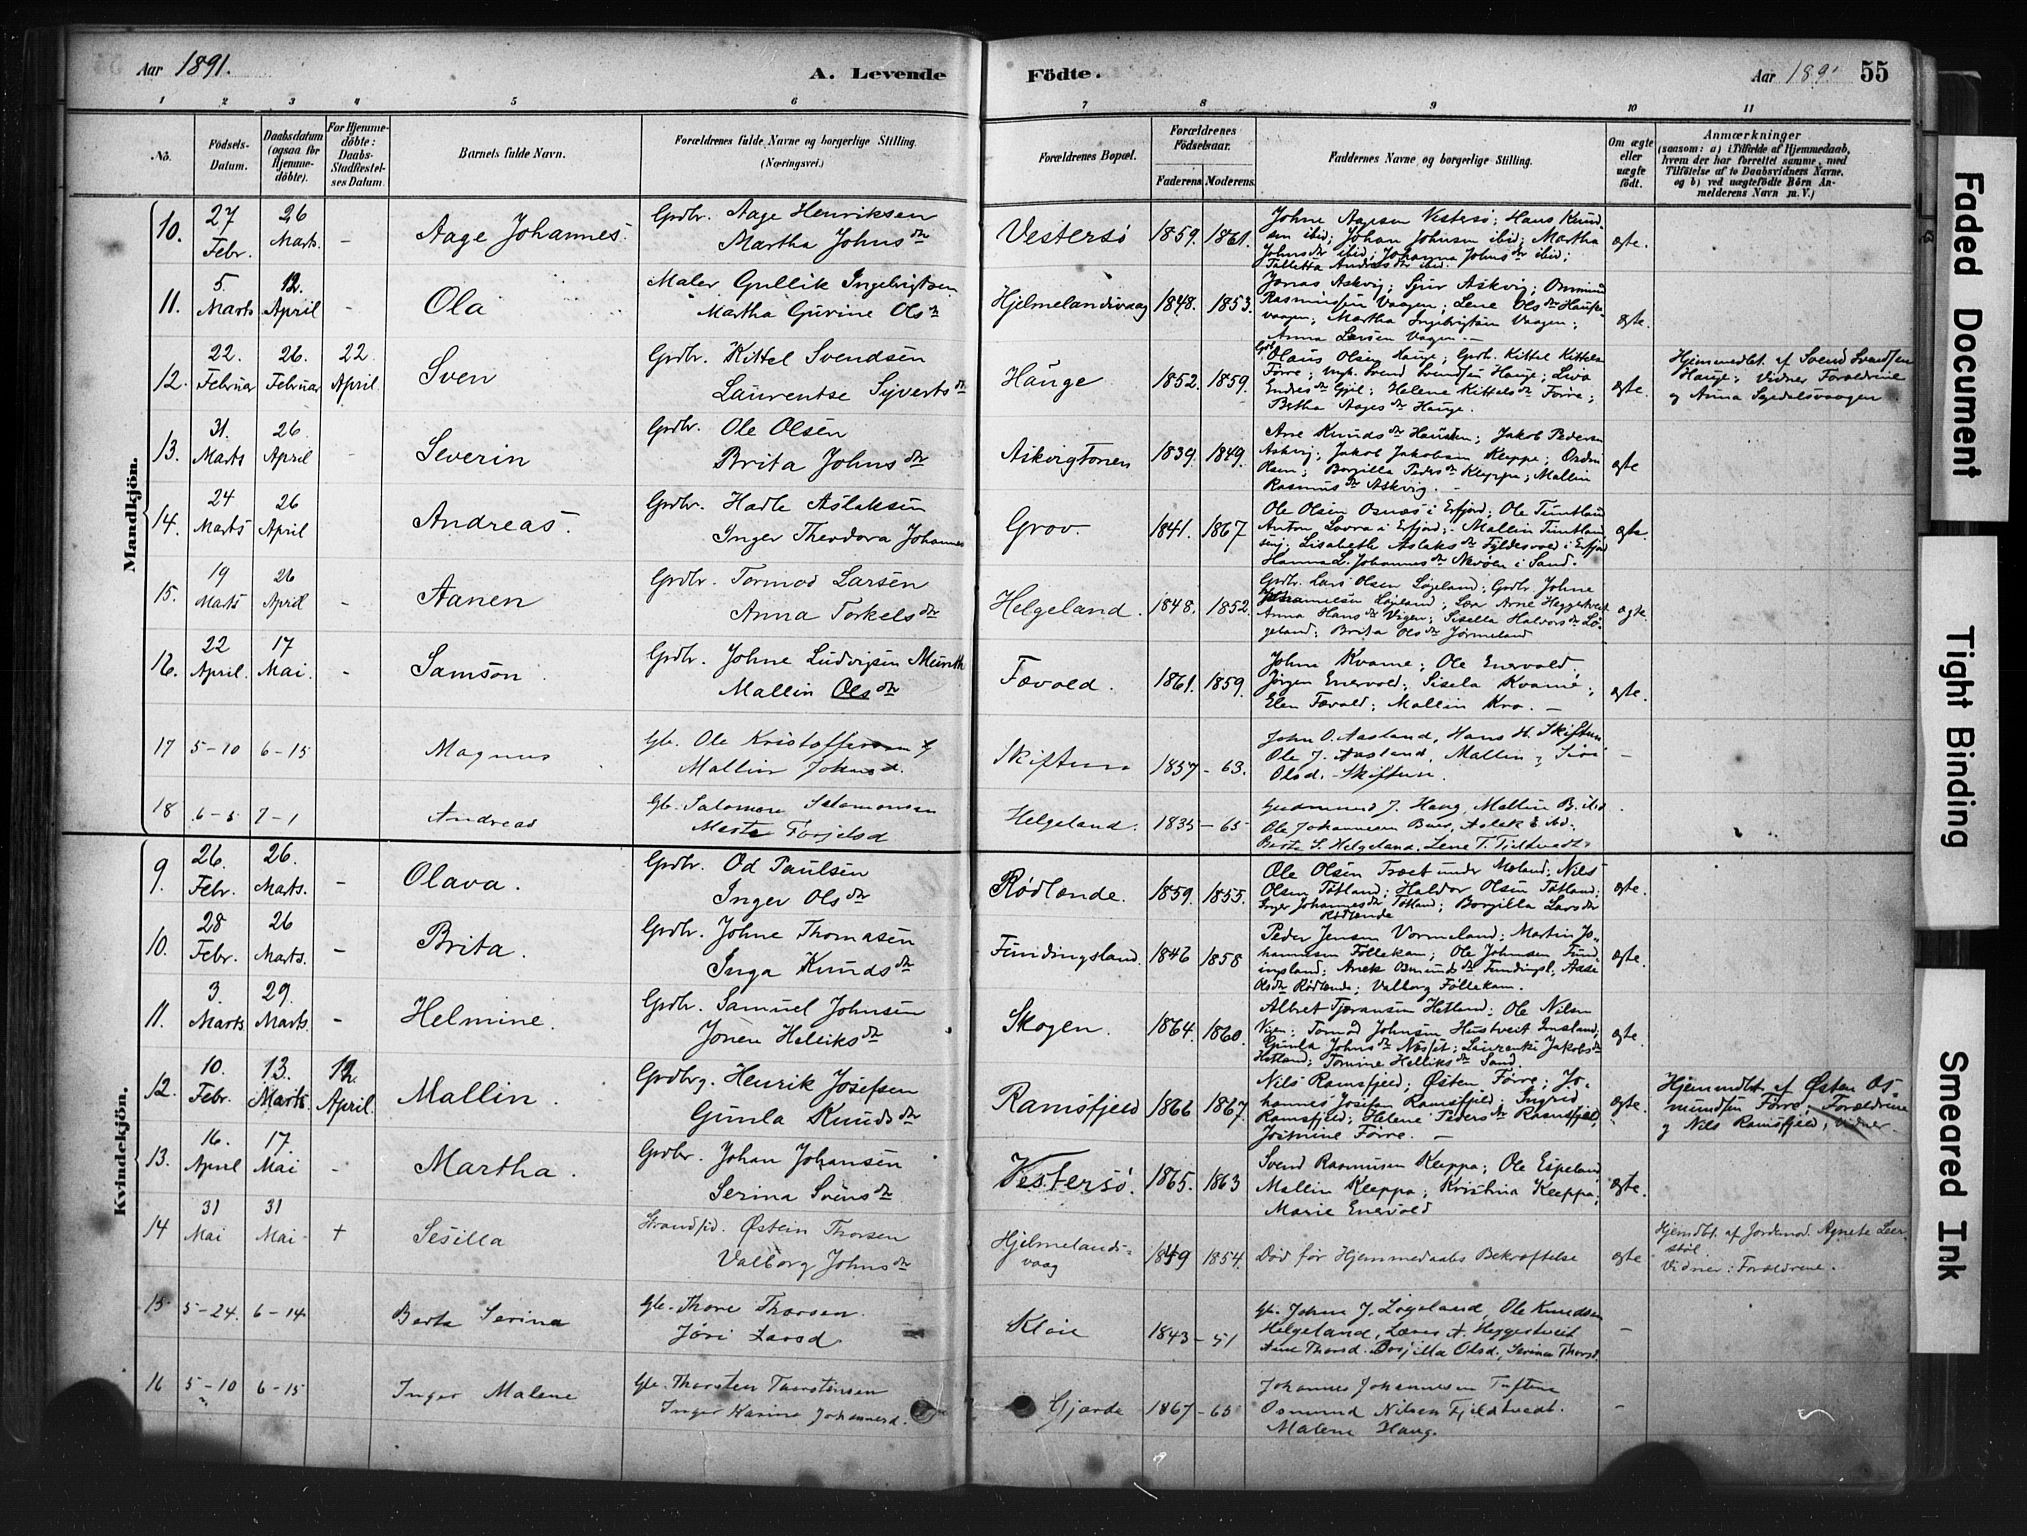 Aar 1891. A. Levende Födte. Aar 189 55
1 2 3 4 5 6 7 8 9 10 11
No. Födsels-Datum. Daabsdatum (ogsaa for Hjemmedöbte). For Hjemmedöbte: Daabs-Stadfæstelses Datum. Barnets fulde Navn. Forældrenes fulde Navne og borgerlige Stilling. (Næringsvei.) Forældrenes Bopæl. Forældrenes Födselsaar. Faderens Moderens. Faddernes Navne og borgerlige Stilling. Om ægte eller uægte födt. Anmærkninger (saasom: a) i Tilfælde af Hjemmedaab, hvem der har forrettet samme, med Tilföielse af to Daabsvidners Navne. og b) ved uægtefödte Börn Anmelderens Navn m. V.)
Mandkjön.
10. 27 Febr. 26 Marts. - Aage Johannes. Grdbr. Aage Henriksen
Martha Johnsdtr Vestersö 1859. 1861. Johne Aagesen Vestersö; Hans Knudsen ibid; Johan Johnsen ibid; Martha Johnsdtr ibid; Johanna Johnsdtr ibid; Andrisdtr ibid. ægte.
11. 5. Marts 12. April - Ola Maler Gullik Ingebrigtsen
Martha Gurine Olsdtr Hjelmelandsvaag 1848. 1853. Jonas Askvig; Sjur Askvig; Ommund Rasmussen Vaagen; Lene Olsdtr vaagen; Martha Ingebrigtsen Vaagen; Anna Larsen Vagen. - ægte.
12. 22. Februar 26. Februar 22 April Sven Grdbr. Kittel Svendsen
Laurentse Syvertsdtr Hauge 1852. 1859. Olaus Olsen Hauge; Grdbr. Kittel Kittels Förre; Svend Svendsen Hauge; Liva Endresdtr Gjil; Helene Kittelsdtr Förre; Betha Aagesdtr Hauge. ægte. Hjemmedbt. af Svend Svendsen Hauge; Vidner Forældrene og Anna
13. 31. Marts 26 April - Severin Grdbr. Ole Olsen
Brita Johnsdtr Askvigtonen 1839. 1849. Arne Knuds Hausken; Jakob Pedersen Askvig; Jakob Jakobsen Kleppe; Olsen; Borgilla Pedersdtr Kleppe; Mallin Rasmusdtr Askvig. - ægte
14. 24 Marts 26 April Andreas. Grdbr. Hadle Aslaksen
Inger Theodora Johannes Grov 1841. 1867 Ole Olsen Osnes i Erfjord; Ole Tuntland Anton Lovra i Erfjord; Mallin Tuntland Lisabeth Aslaksdtr i Erfjord Hanna L. Johannesdtr i Sand. ægte.
15. 19 Marts 26 April - Aanen Grdbr. Tormod Larsen
Anna Torkelsdtr Helgeland. 1848. 1852. Grdbr. Lars Olsen Løgeland; Grdbr. Johne Løgeland; Lars Arne Heggestveit Anna Hansdtr Vigen; Sisella Halvorsdtr Løgeland; Brita Olsdtr Jørmeland ægte.
16. 22 April. 17 Mai. - Samson. Grdbr. Johne Ludvigsen Munth
Mallin Olsdtr Fævold. 1861. 1859. Johne Kvame; Ole Enervold; Jörgen Enervold; Sisela Kvame; Elen Fævold; Mallin Kro. - ægte.
17 5-10 6-15 Magnus Gb. Ole Kristoffersen
Mallin Johnsd. Skiftun 1857-63. John O. Aasland, Hans H. Skiftun Ole J. Aasland, Mallin, Siri Olsd. Skiftun. -
18 6-5 7-1 Andreas Gb. Salomon Salamonsen
Marta Torjelsd Helgeland. 1835-65 Gudmund J. Haug, Mallin B. ibd Ole Johannesen Aslak E. ibd. Berta S. Helgeland, Lene T. Tjeltvedt.
Kvindekjön.
9. 26. Febr. 26. Marts. - Olava. Grdbr. Od Paulsen
Inger Olsdtr Rödlende. 1859. 1855. Ole Olsen Træet under Moland; Nils Olsen Tøtland; Haldor Olsen Tøtland; Inger Johannesdtr Tøtland; Borgilla Larsdtr Rödlende ægte.
10. 28 Febr. 26 Marts. - Brita. Grdbr. Johne Thomasen
Inga Knudsdtr Fundingsland. 1846 1858 Peder Jensen Vormeland; Martin Johannesen Føllekam; Ole Johnsen Fundingsland; Anek Osmundsdtr Fundingsl. Aase Olsdtr Rødlende; Valborg Føllekam. ægte.
11. 3. Marts. 29. Marts. - Helmine. Grdbr. Samuel Johnsen
Jönee Hellicksdtr Skogen. 1864. 1860. Albret Tjøransen Hetland; Ole Nilsen Vigen; Tormod Johnsen Hustveit Imsland; Gunla Johnsdtr Næset; Laurenti Jakobsdtr Hetland; Tomine Hellicksdtr Sand. ægte.
12. 10. Febr. 13. Marts 12. April. Mallin. Grdbrg. Henrik Josefsen
Gunla Knudsdtr Ramsfjeld 1866 1867. Nils Ramsfjeld; Østen Førre; Johannes Josefsen Ramsfjeld; Ingrid Ramsfjeld; Helene Pedersdtr Ramsfjeld, Josmine Førre. - ægte. Hjemmdbt. af Østen Osmundsen Førre; Forældrene og Nils Ramsfjeld, Vidner.
13. 16. April 17 Mai - Martha. Grdbr. Johan Johansen
Serina Svensdtr Vestersö. 1865. 1863 Svend Rasmusen Kleppa; Ole Espeland Mallin Kleppa; Kristina Kleppa; Marie Enervold ægte.
14 31 Mai 31 Mai + Sesilla Strandsid. Østein Thorsen
Valborg Johnsdtr Hjelmelandsvaag 1849 1854. Død før Hjemmedaabs Bekræftelse ægte Hjemdbt. af Jordmod. Agnete Leerstöl. Vidner: Forældrene.
15 5-24. 6-14 Berta Serina Gb. Thore Thorsen.
Jøri Larsd. Kleie 1843-51 Gb. Johne J. Løgeland, Ole Knudsen Helgeland, Lars A. Heggestveit Ane Thorsd. Borjilla Olsd, Serina Thorsd. -
16 5-10 6-15 Inger Malene Gb. Thorsten Thorstensen
Inger Karine Johannesd. Gjerde 1867-65 Johannes Johannesen Tuften Osmund Nilsen Fjeldtvedt. Malene Haug. -
Faded Document
Tight Binding
Smeared Ink